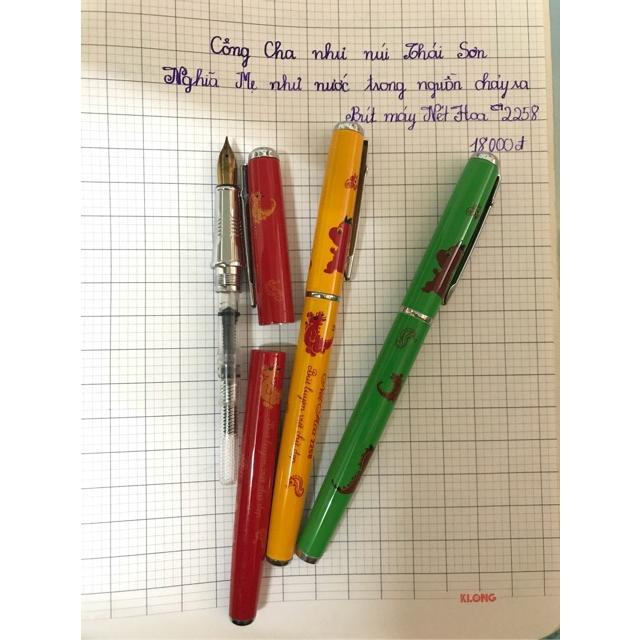 Công Cha như núi Thái Sơn
Nghĩa Mẹ như nước trong nguồn chảy ra
Bút máy Nét Hoa 2258
18000đ
Nét Hoa 2258
Bút luyện viết chữ đẹp
KLONG